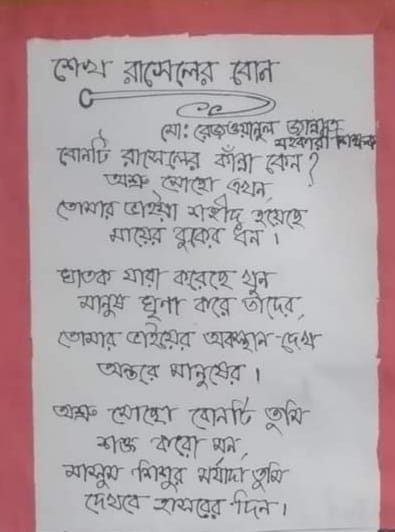 শেখ রাসেলের বোন
মো: রেজওয়ানুল জান্নাত
সহকারী শিক্ষক
বোনটি রাসেলের কাঁন্না কেন?
অশ্রু মোছো এখন,
তোমার ভাইয়া শহীদ হয়েছে
মায়ের বুকের ধন।
ঘাতক যারা করেছে খুন
মানুষ ঘৃণা করে তাদের,
তোমার ভাইয়ের অবস্থান দেখ
অন্তরে মানুষের।
অশ্রু মোছো বোনটি তুমি
শক্ত করো মন,
মাসুম শিশুর মর্যাদা তুমি
দেখবে হাসরের দিন।